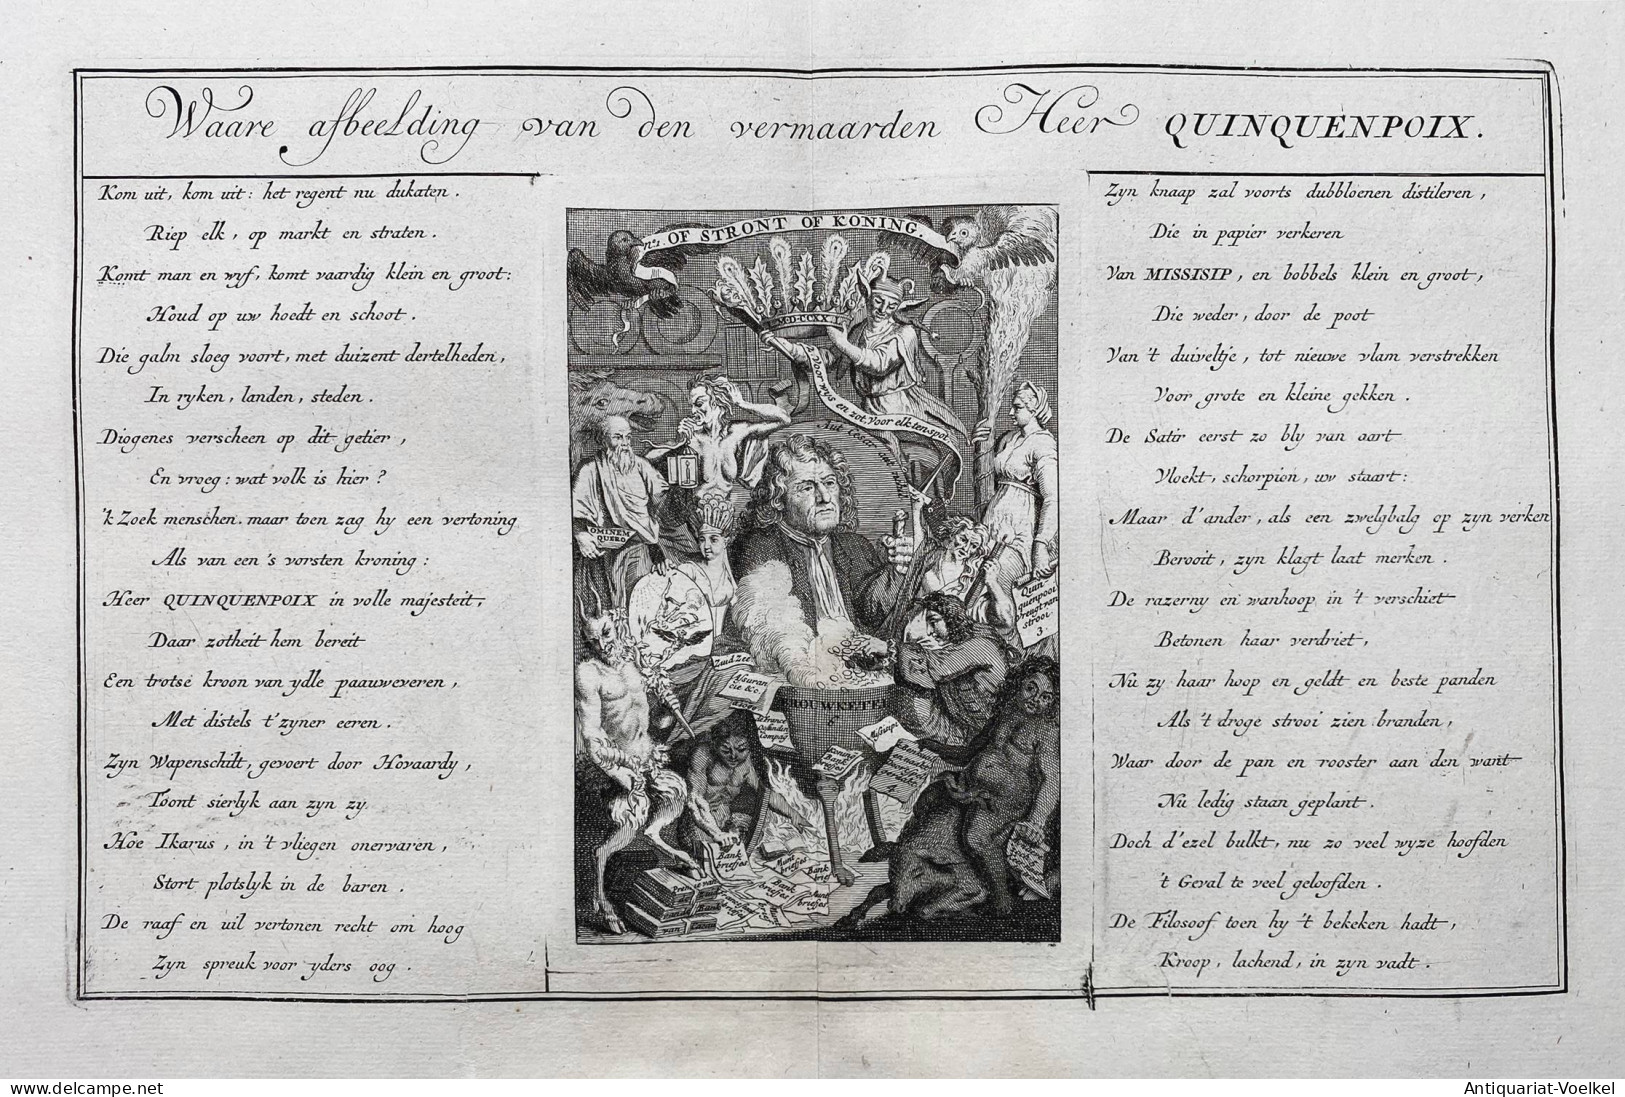 Waare afbeelding van den vermaarden Heer QUINQUENPOIX.
Kom uit, kom uit: het regent nu dukaten.
Riep elk, op markt en straten.
Komt man en wyf, komt vaardig klein en groot:
Houd op uw hoedt en schoot.
Die galm sloeg voort, met duizent dertelheden,
In ryken, landen, steden.
Diogenes verscheen op dit getier,
En vroeg: wat volk is hier?
'k Zoek menschen. maar toen zag hy een vertoning
Als van een 's vorsten kroning:
Heer QUINQUENPOIX in volle majesteit,
Daar zotheit hem bereit
Een trotse kroon van ydle paauweveren,
Met distels t'zyner eeren.
Zyn Wapenschilt, gevoert door Hovaardy,
Toont sierlyk aan zyn zy.
Hoe Ikarus, in 't vliegen onervaren,
Stort plotslyk in de baren.
De raaf en uil vertonen recht om hoog
Zyn spreuk voor yders oog.
n.1 OF STRONT OF KONING.
M·D·CCXX
2 Voor wys en zot, Voor elk ten spot.
Aut Cesar aut
OMINEM QUERO
Quinquenpoix vreugt van strooi
3.
Zuid Zee
Assurancie &c.
ROUWKETEL
6
Missisipi
4
Bank briefjes
Munt briefjes
Bank brief
Bank briefjes
Munt briefjes
Bank
van
Zyn knaap zal voorts dubbloenen distileren,
Die in papier verkeren
Van MISSISIP, en bobbels klein en groot,
Die weder, door de poot
Van 't duiveltje, tot nieuwe vlam verstrekken
Voor grote en kleine gekken.
De Satir eerst zo bly van aart
Vloekt, schorpion, uw staart:
Maar d'ander, als een zwelgbalg op zyn verken
Berooit, zyn klagt laat merken.
De razerny en wanhoop in 't verschiet
Betonen haar verdriet,
Nu zy haar hoop en geldt en beste panden
Als 't droge strooi zien branden,
Waar door de pan en rooster aan den want
Nu ledig staan geplant.
Doch d'ezel bulkt, nu zo veel wyze hoofden
't Geval te veel geloofden.
De Filosoof toen hy 't bekeken hadt,
Kroop, lachend, in zyn vadt.
Antiquariat-Voelkel
www.delcampe.net